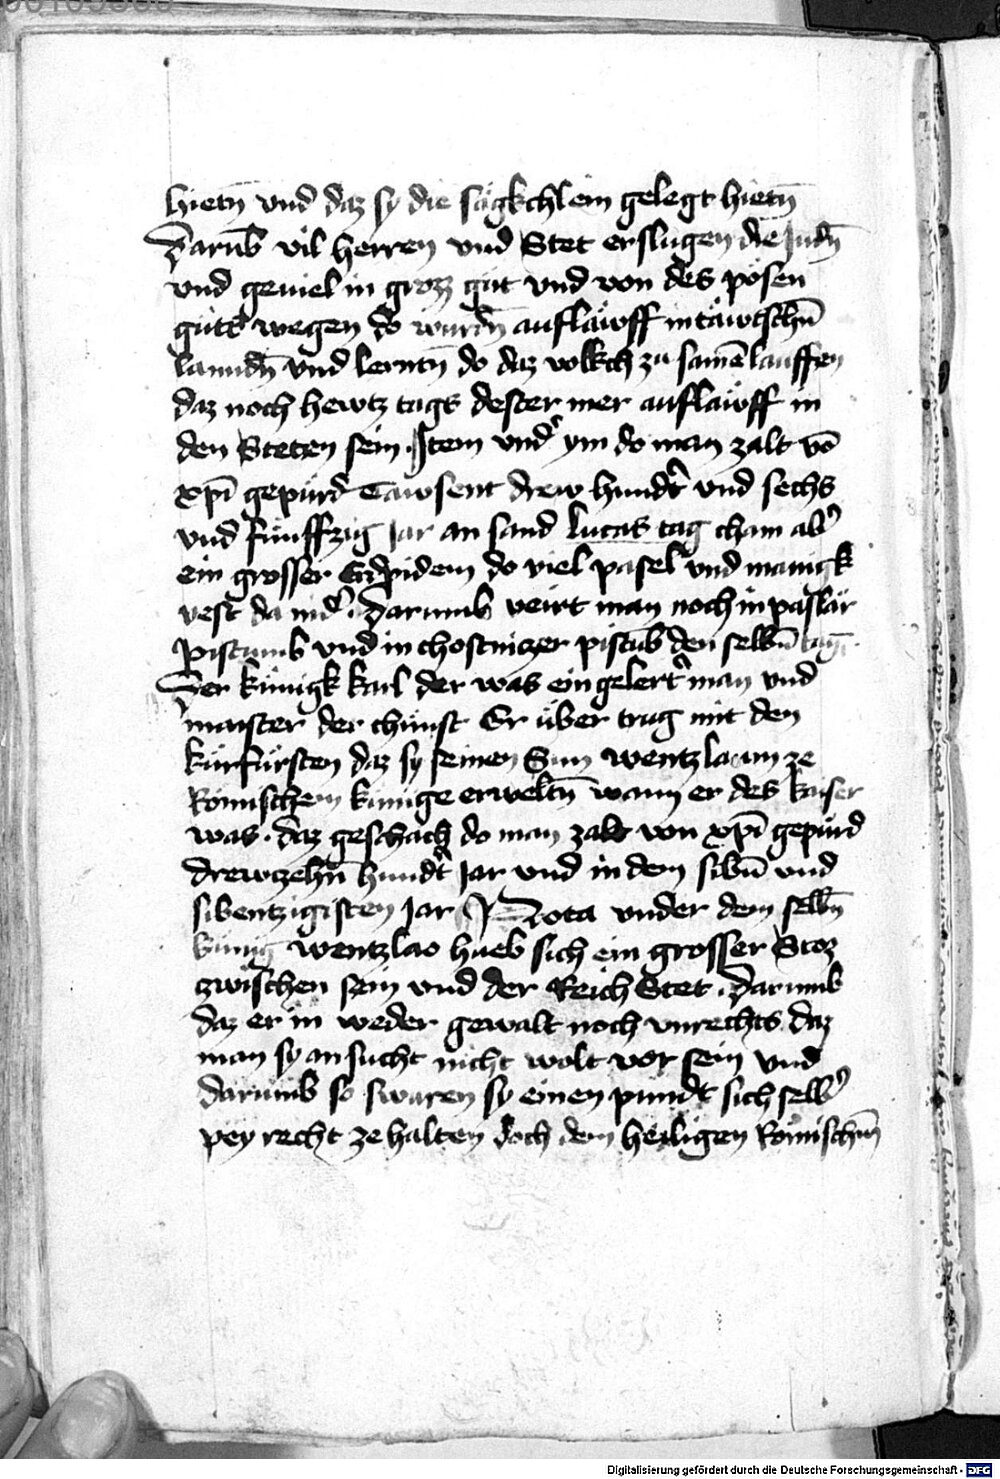 hietn̄ vnd daz sy die sägkchlein gelegt hietn̄
Darūb vil herren vnd Stet erslugen die Judn̄
vnd geuiel in grozz gůt vnd von des pösen
gůts wegen do wurdn̄ auflawff in tawtschn̄
lanndn̄ vnd lerntn̄ do daz volkch zu samē lauffen
daz noch hewtz tags dester mer auflawff in
den Steten sein . Item vnd' ym do man zalt vō
xp̄i gepürd Tawsent drew hundt' vnd sechs
vnd fünffzig Jar an sand lucas tag cham ab'
ein grosser Erdpidem do viel pasel vnd manigk
vest da nid' . darumb veirt man noch in paslär
pistumb vnd in chostnitzer pistūb den selbn̄ tag
Der künigk karl der was ein gelert' man vnd
maister der chünst Er über trug mit den
kürfürsten daz sy seinen Sun wentzlaum ze
Römischem künige erweltn̄ wann er des kaiser
was . daz geschach do man zalt von xp̄i gepürd
drewtzehn̄ hundt' Jar vnd in dem sibn̄ vnd
sibentzigisten Jar Nota vnder dem selbn̄
künig wentzlao hueb sich ein grosser Stoz
zwischen sein vnd der Reich Stet . darumb
daz er in weder gewalt noch vnrechts daz
man sy an sucht nicht wolt vor sein vnd
darumb so swuren sy einen pundt sich selb'
pey recht ze halten doch dem heiligen Römischn̄
Digitalisierung gefördert durch die Deutsche Forschungsgemeinschaft - DFG